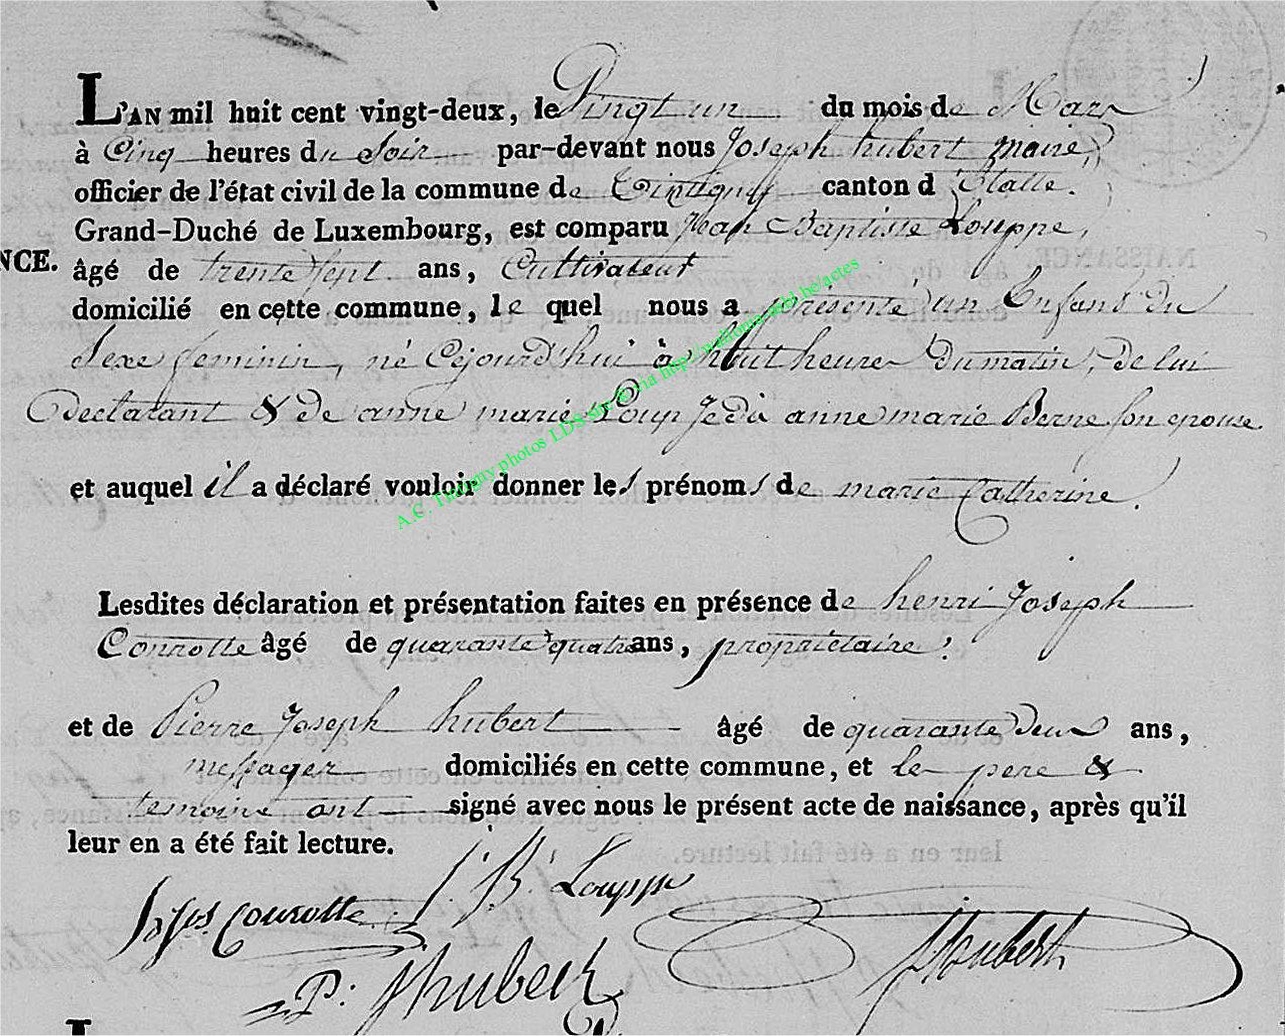 L'AN mil huit cent vingt-deux, le Vingt un du mois de Mars
à Cinq heures du Soir par-devant nous Joseph hubert maire,
officier de l'état civil de la commune de Tintigny canton d'Etalle.
Grand-Duché de Luxembourg, est comparu Jean Baptiste Louppe,
NCE.
âgé de trente sept ans, Cultivateur
domicilié en cette commune, le quel nous a présenté un Enfant du
Sexe feminin, né Cejourd'hui à huit heures du matin, de lui
Declarant & de anne marie anne marie Berne son epouse
et auquel il a déclaré vouloir donner les prénoms de marie Catherine.
Lesdites déclaration et présentation faites en présence de henri Joseph
Conrotte âgé de quarante quatre ans, propriétaire.
et de Pierre Joseph hubert âgé de quarante Deux ans,
messager domiciliés en cette commune, et le pere &
temoins ont signé avec nous le présent acte de naissance, après qu'il
leur en a été fait lecture.
J. B. Louppe
Conrotte
P. J hubert
J hubert
A.C. Tintigny photos LDS